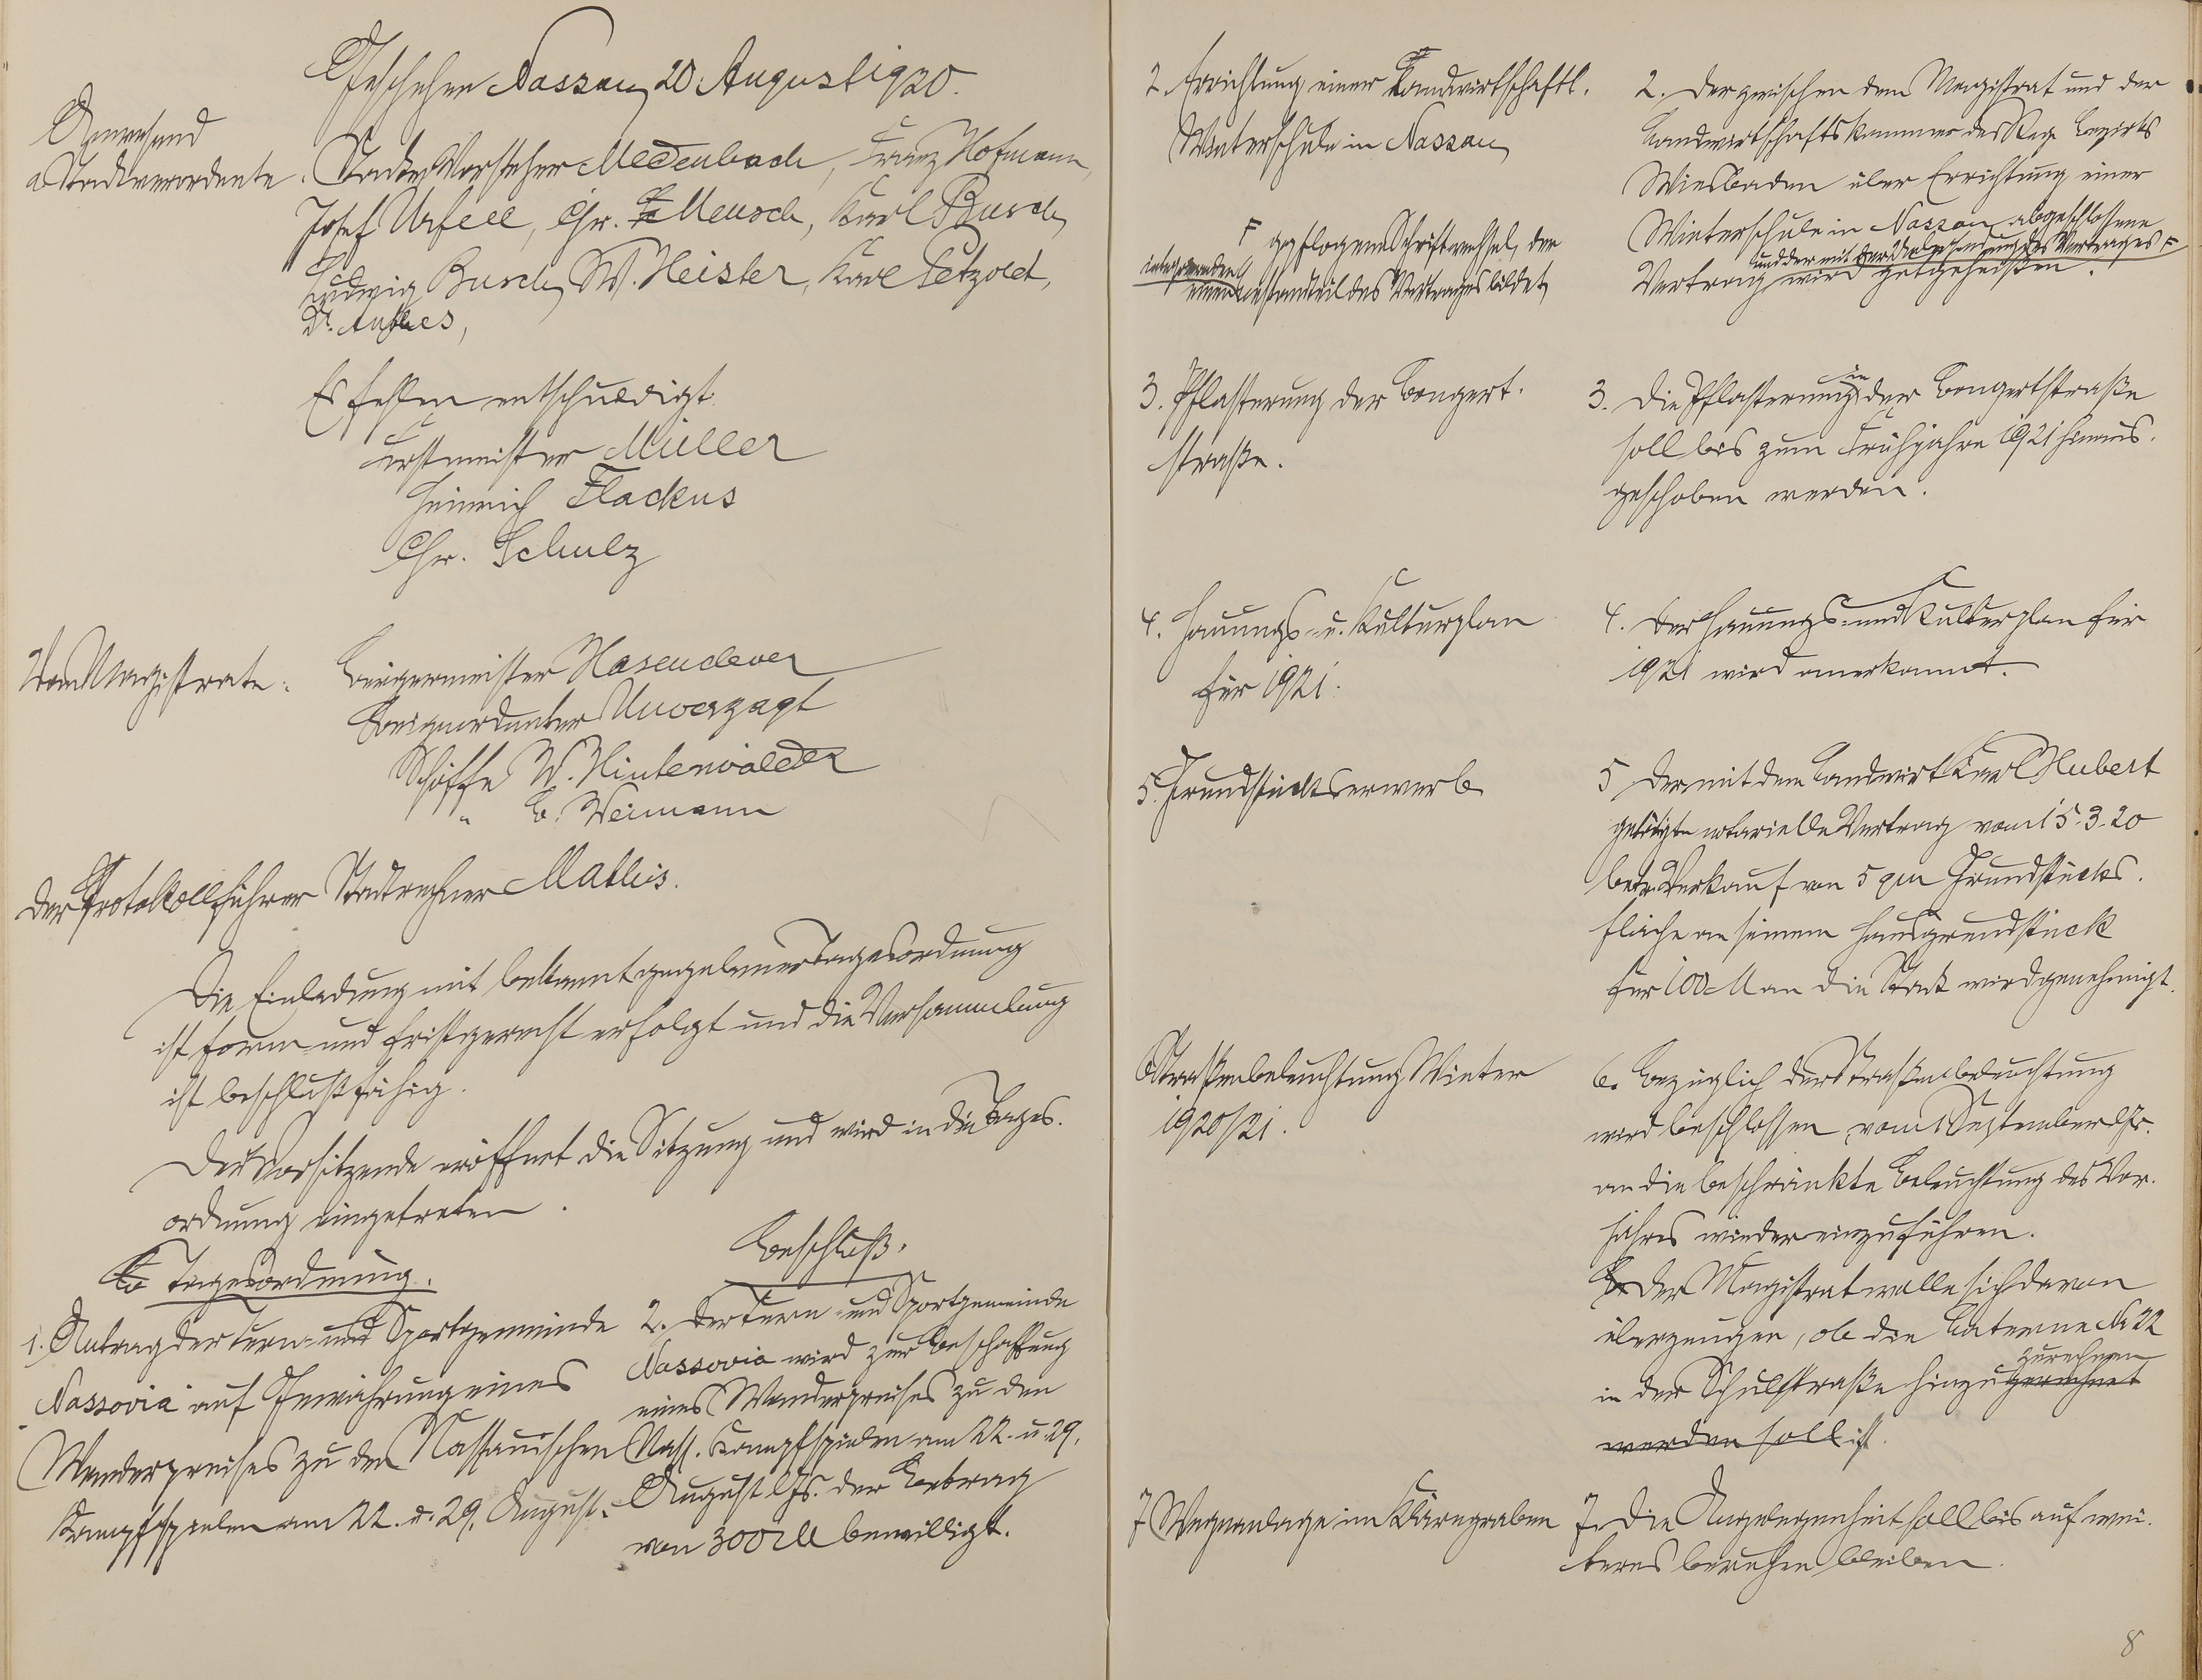 Geschehen Nassau, 20. August 1920.
Anwesend
a Stadtverordnete. Stadtv. Vorsteher Medenbach, Franz Hofmann,
Josef Urfell, Chr. Meusch, Karl Busch,
Ludwig Busch, W. Heister, Karl Petzold,
Dr. Anthes,
Es fehlen entschuldigt
Forstmeister Müller
Heinrich Flackus
Chr. Schulz
Vom Magistrate: Bürgermeister Hasenclever
Beigeordneter Unverzagt
Schöffe W. Hinterwälder
" C. Weimann
Der Protokollführer Stadtrechner Mathis.
Die Einladung mit bekanntgegebener Tagesordnung
ist form- und fristgerecht erfolgt und die Versammlung
ist beschlußfähig.
Der Vorsitzende eröffnet die Sitzung und wird in die Tages-
ordnung eingetreten.
Tagesordnung.
Beschluß.
1. Antrag der Turn- und Sportgemeinde
"Nassovia" auf Gewährung eines
Wanderpreises zu den Nassauischen
Kampfspielen am 22. u. 29. August.
2. Der Turn- und Sportgemeinde
Nassovia wird zur Beschaffung
eines Wanderpreises zu den
Nass. Kampfspielen am 22. u. 29.
August ds. Js. der Betrag
von 300 M bewilligt.
2. Errichtung einer Landwirtschaftl.
Winterschule in Nassau
2. Der zwischen dem Magistrat und der
Landwirtschaftskammer des Reg. Bezirks
Wiesbaden über Errichtung einer
Winterschule in Nassau abgeschlossene
und der mit der Übersendung des Vertrages F
Vertrag wird gutgeheißen.
F gepflogene Schriftwechsel, der
integrierenden
einen Bestandteil des Vertrages bildet,
3. Pflasterung der Bongert-
straße.
3. Die Pflasterung in der Bongertstraße
soll bis zum Frühjahre 1921 hinaus-
geschoben werden.
4. Hauungs- u. Kulturplan
für 1921.
4. Der Hauungs- und Kulturplan für
1921 wird anerkannt.
5. Grundstückserwerb
5 Der mit dem Landwirt Karl Hubert
getätigte notarielle Vertrag vom 15.3.20
betr. Verkauf von 5 qm Grundstücks-
fläche an seinem Hausgrundstück
für 100 M an die Stadt wird genehmigt.
6 Straßenbeleuchtung Winter
1920/21.
6. Bezüglich der Straßenbeleuchtung
wird beschlossen vom 1 September ds. Js.
an die beschränkte Beleuchtung des Vor-
jahres wieder einzuführen.
Der Magistrat wolle sich davon
überzeugen, ob die Laterne No 22
zurechnen
in der Schulstraße hinzugerechnet
werden soll ist.
7 Wegeanlage im Klärngraben
7. Die Angelegenheit soll bis auf wei-
teres beruhen bleiben.
8